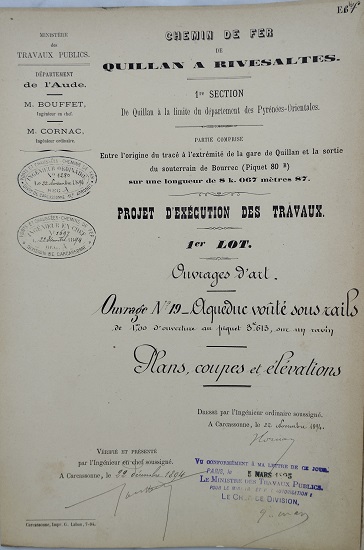 E67
MINISTÈRE
des
TRAVAUX PUBLICS.
DÉPARTEMENT
de l'Aude.
M. BOUFFET,
Ingénieur en chef.
M. CORNAC,
Ingénieur ordinaire
CHEMIN DE FER
DE
QUILLAN A RIVESALTES.
1re SECTION
De Quillan à la limite du département des Pyrénées-Orientales.
PARTIE COMPRISE
Entre l'origine du tracé à l'extrémité de la gare de Quillan et la sortie
du souterrain de Bourrec (Piquet 80
sur une longueur de 8 k. 067 mètres 87.
INGÉNIEUR ORDINAIRE
INGÉNIEUR EN CHEF
PROJET D'EXÉCUTION DES TRAVAUX.
1er LOT.
Ouvrages d'art.
Ouvrage No 19 - Aqueduc voûté sous rails
de d'ouverture au piquet sur un ravin
Plans, coupes et élévations
DRESSÉ par l'Ingénieur ordinaire soussigné.
A Carcassonne, le 22 décembre 1894.
VÉRIFIÉ ET PRÉSENTÉ
par l'Ingénieur en chef soussigné.
A Carcassonne, le 22 décembre 1894
VU CONFORMÉMENT A MA LETTRE DE CE JOUR.
PARIS, LE 5 MARS 1895
LE MINISTRE DES TRAVAUX PUBLICS.
POUR LE MINISTRE ET PAR AUTORISATION
LE CHEF DE DIVISION,
Carcassonne, Impr. G. Laban. 7-94.